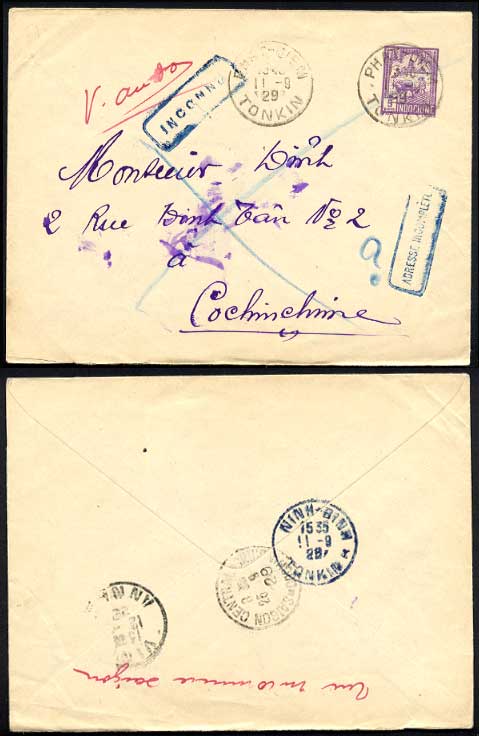 V. au dos
INCONNU
TONKIN
11 -9
29
INDOCHINE
TONKIN
Monsieur Dinh
2 Rue Dinh Tân No 2
à
Cochinchine
?
ADRESSE INCOMPLÈTE
NINH-BINH
1535
11 -9
29
TONKIN
SAIGON CENTRAL
Rue inconnue Saigon